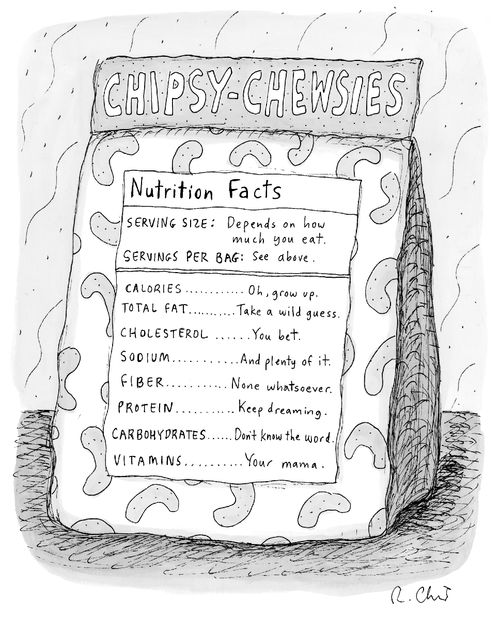 CHIPSY-CHEWSIES
Nutrition Facts
SERVING SIZE: Depends on how
much you eat.
SERVINGS PER BAG: See above.
CALORIES...........Oh, grow up.
TOTAL FAT..........Take a wild guess.
CHOLESTEROL ......You bet.
SODIUM...........And plenty of it.
FIBER...........None whatsoever.
PROTEIN...........Keep dreaming.
CARBOHYDRATES......Don't know the word.
VITAMINS..........Your mama.